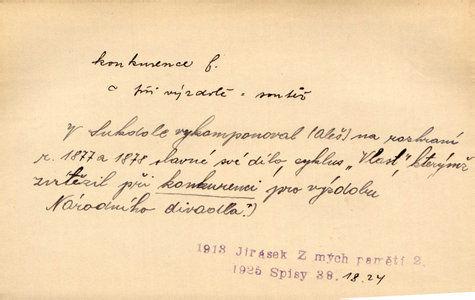 konkurence f.
při výzdobě - soutěž
V Sukdole vykomponoval (Aleš) na rozhraní
r. 1877 a 1878 slavné své dílo, cyklus „Vlast“, kterýmž
zvítězil při konkurenci pro výzdobu
Národního divadla.)
1913 Jirásek Z mých pamětí 2.
1925 Spisy 38. 18.24